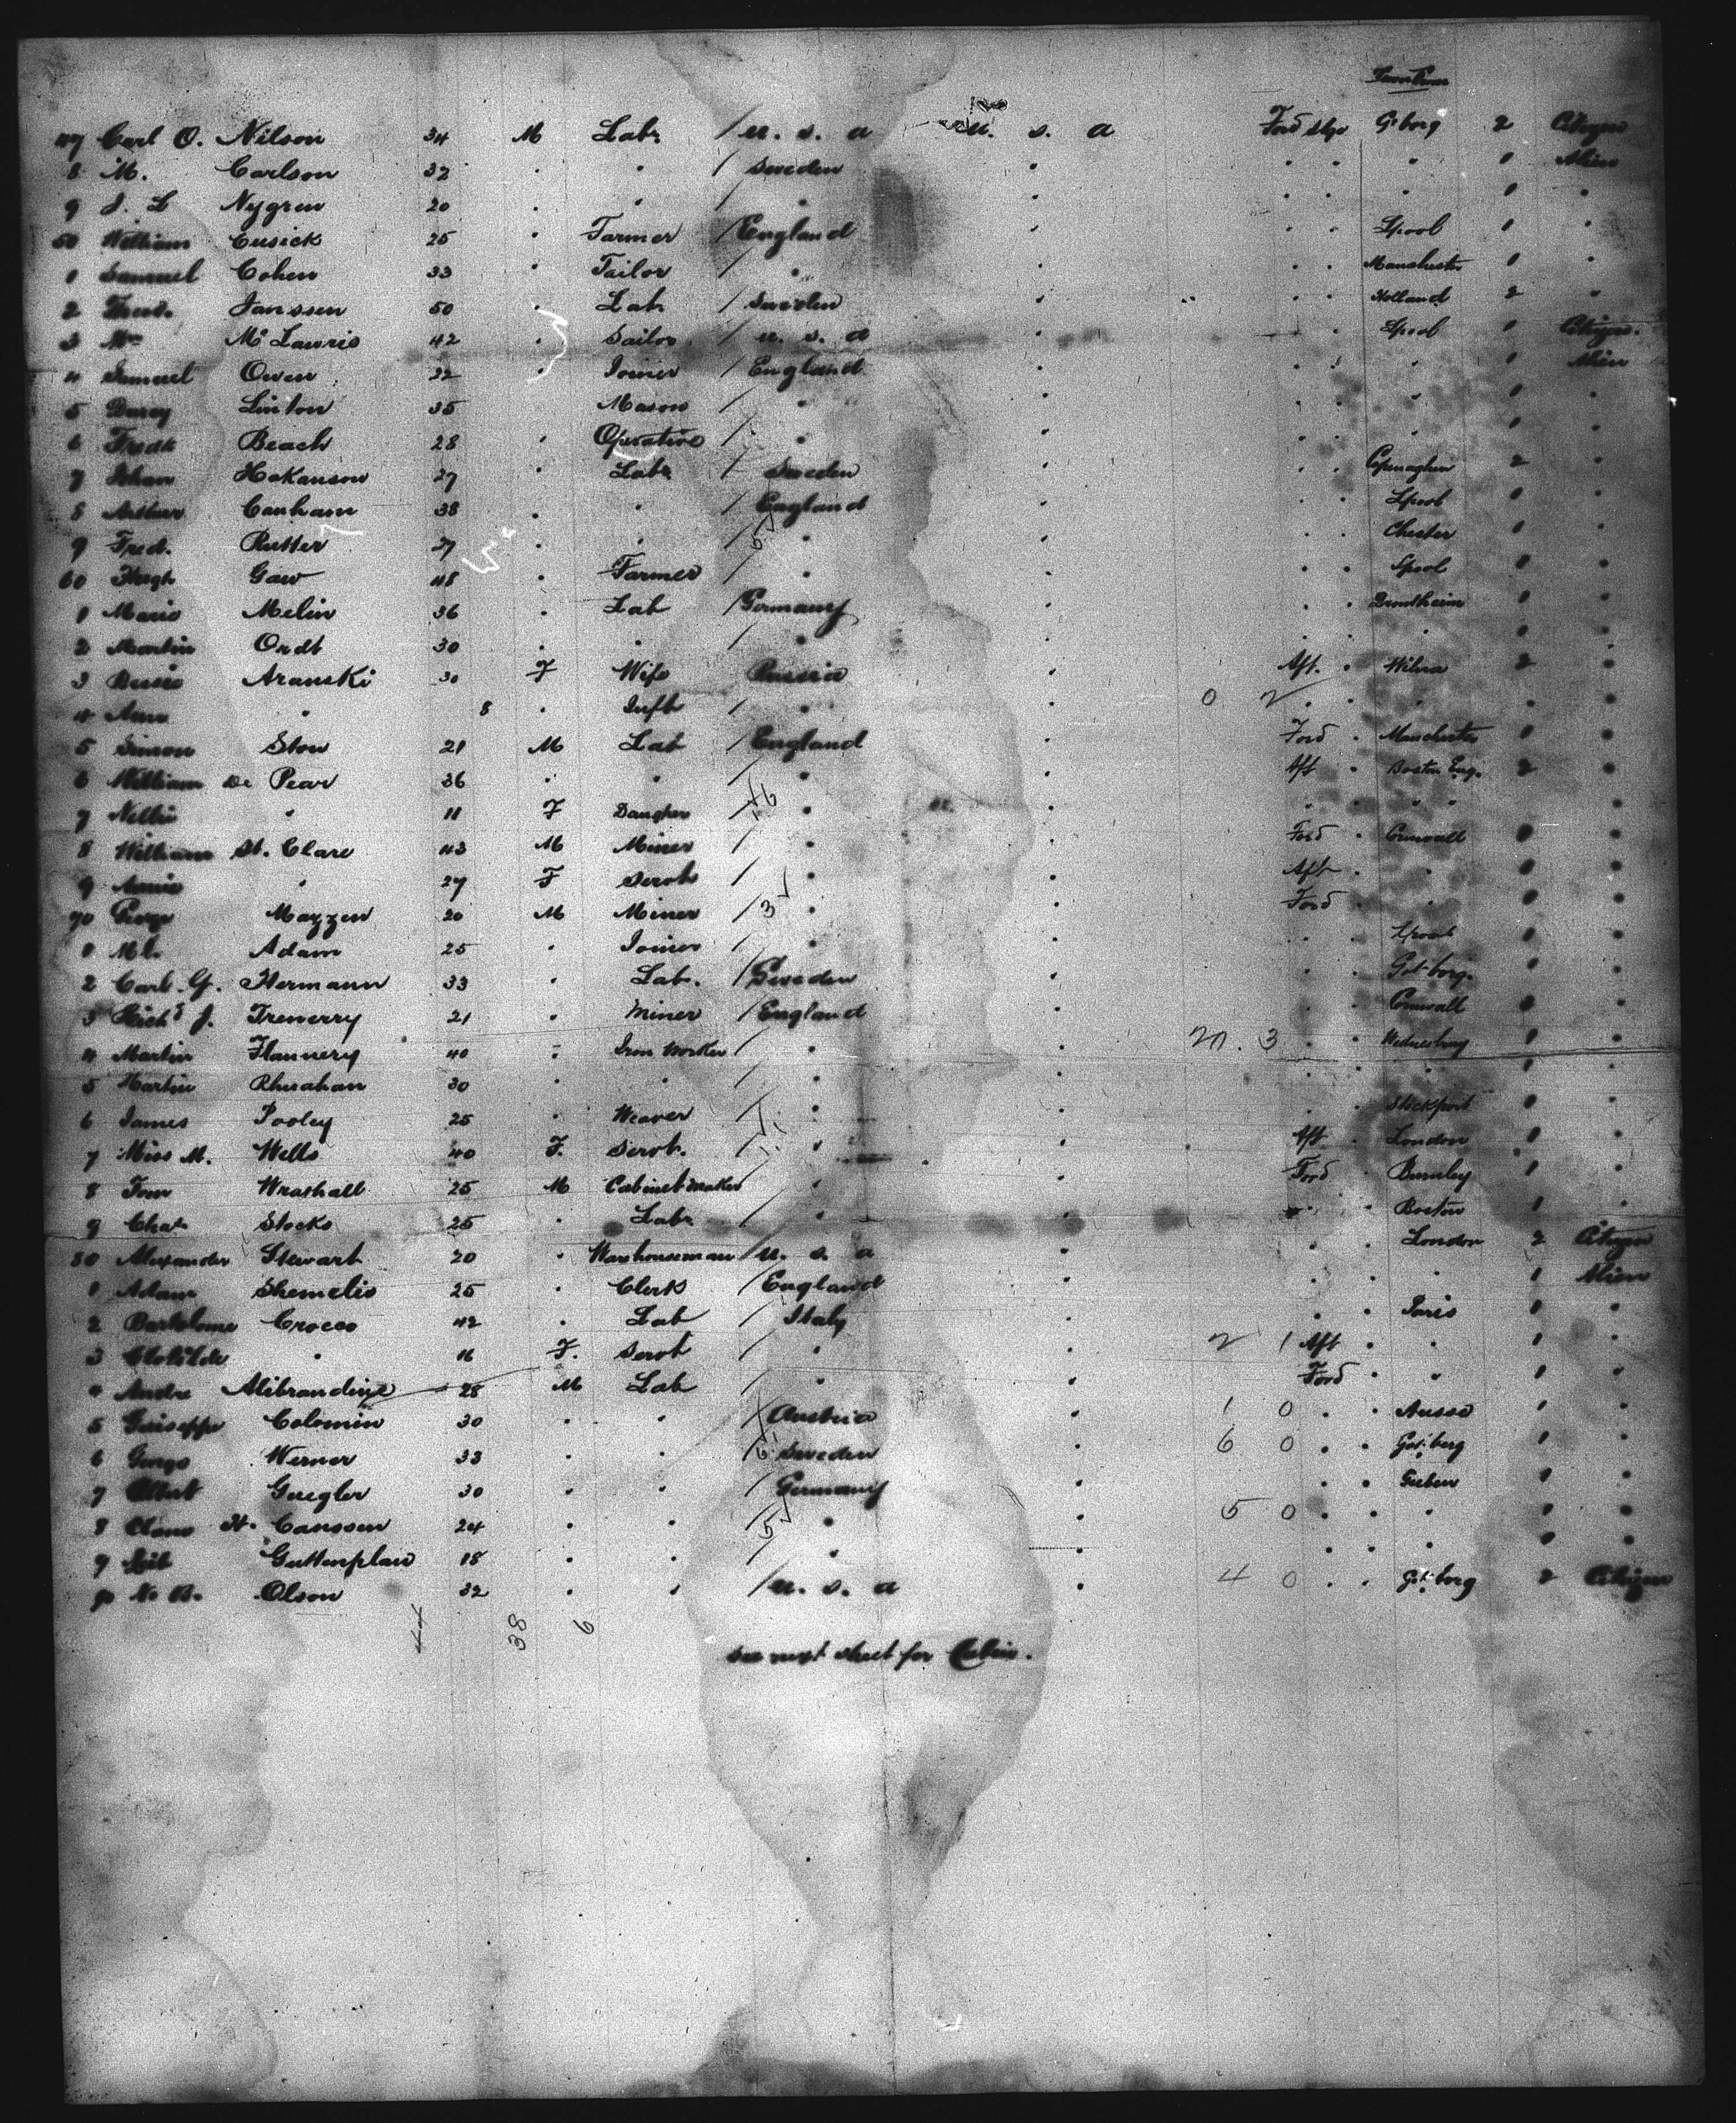 47 Carl O. Nilson 34 M Labr / U. S. A U. S. A Ford Stge Gt borg 2 Citizen
8 M. Carlson 32 " " / Sweden " " " " 1 Alien
9 J. L Nygren 20 " " / " " " " " 1 "
50 William Cusick 25 " Farmer / England " " " Lpool 1 "
1 Samuel Cohen 33 " Tailor / " " " " Manchester 1 "
2 Theod. Janssen 50 " Lab / Sweden " " " Holland 2 "
3 Wm McLauris 42 " Sailor / U. S. A " " " Lpool 1 Citizen.
4 Samuel Owen 22 " Joiner / England " " " " 1 Alien
5 Darcy Linton 35 Mason / " " " " " 1 "
6 Fredk Beach 28 " Operative / " " " " " 1 "
7 Johan Hakanson 27 " Labr / Sweden " " " Copenaghen 2 "
8 Arthur Canham 38 " " / England " " " Lpool 1 "
9 Fred. Rutter 27 " " / " " " " Chester 1 "
60 Hugh Gaw 48 " Farmer / " " " " Lpool 1 "
1 Mario Melin 36 " Lab / Germany " " " Drontheim 1 "
2 Martin Ordt 30 " " / " " " " " 1 "
3 Bessie Aranski 30 F Wife Russia " Aft. " Wilna 2 "
4 Anna " 8 " Inft / " " 0 2 " " " "
5 Simon Stow 21 M Lab / England " Ford " Manchester 1 "
6 William De Pear 36 " " / " " Aft " Boston Eng. 2 "
7 Nellie " 11 F Daughter / " " " " " " "
8 William St. Clare 43 M Miner / " " Ford " Cornwall 1 "
9 Annie " 27 F Servt / " " Aft " " 1 "
70 George Mazzen 20 M Miner / 3 " " Ford " " 1 "
1 Adam 25 " Joiner / " " " " Lpool 1 "
2 Carl. G. Hermann 33 " Lab. / Sweden " " " Got-borg. 1 "
3 Richd J. Trenerry 21 " Miner / England " " " Cornwall 1 "
4 Martin Flannery 40 " Iron Worker / " " 20. 3 " " Wednesbury 1 "
5 Martin Rhurahan 30 " " / " " " " " 1 "
6 James Pooley 25 " Weaver / " " " " Stockport 1 "
7 Miss M. Wells 40 F. Servt. / " " Aft " London 1 "
8 Tom Wrathall 25 M Cabinet Maker / " " Ford " Burnley 1 "
9 Chas Stocks 25 " Labr / " " " " Boston 1 "
80 Alexander Stewart 20 " Warehouseman / U. S. A " " " London 2 Citizen
1 Adam Shemelis 25 " Clerk / England " " " " 1 Alien
2 Bartolomo Crocco 42 " Lab / Italy " " " Paris 1 "
3 Clotilde " 16 F. Servt / " " 2 1 Aft " " 1 "
4 Andre Alibrandine 28 M Lab / " " Ford " " 1 "
5 Guiseppe Colomin 30 " " / Austria " 1 0 " " Ausso 1 "
6 George Werner 33 " " / Sweden " 6 0 " " Got-borg 1 "
7 Albert Guegler 30 " " / Germany " " " 1 "
8 Claus H. Canssen 24 " " / 5 " " 5 0 " " " 1 "
9 Leib Guttenplan 18 " " / " " " " " " "
90 N. B. Olson 32 " " / U. S. A " 4 0 " " Got-borg 2 Citizen
44 38 6
See next sheet for Cabin.